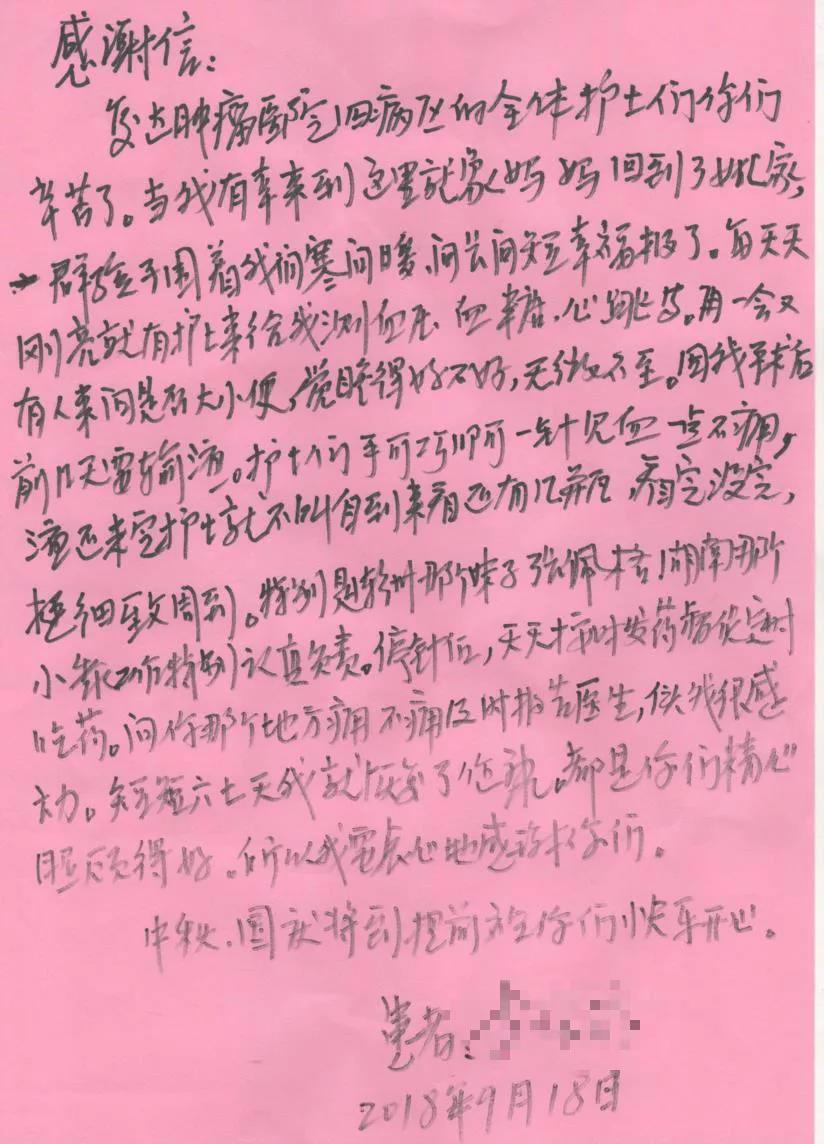 感谢信:
发达肿瘤医院四病区的全体护士们你们
辛苦了。当我有幸来到这里就象妈妈回到了娘家,
一群孩子围着我问寒问暖、问长问短幸福极了。每天天
刚亮就有护士来给我测血压、血糖、心跳等。再一会又
有人来问是否大小便,觉睡得好不好,无微不至。因我手术后
前几天需输液。护士们手可巧啊一针见血一点不痛,
液还未完护士就不叫自到来看还有几并瓶,看完没完,
细致周到。特别是 那个妹子张佩 !湖南那个
小 工作特别认真负责。停针后,天天按时发药 定时
吃药。问你那个地方痛不痛及时报告医生,使我很感
动。短短六七天我就恢复了 。都是你们精心
照顾得好。所以我要衷心地感谢你们。
中秋、国庆将到提前祝你们快乐开心。
患者:
2018年9月18日